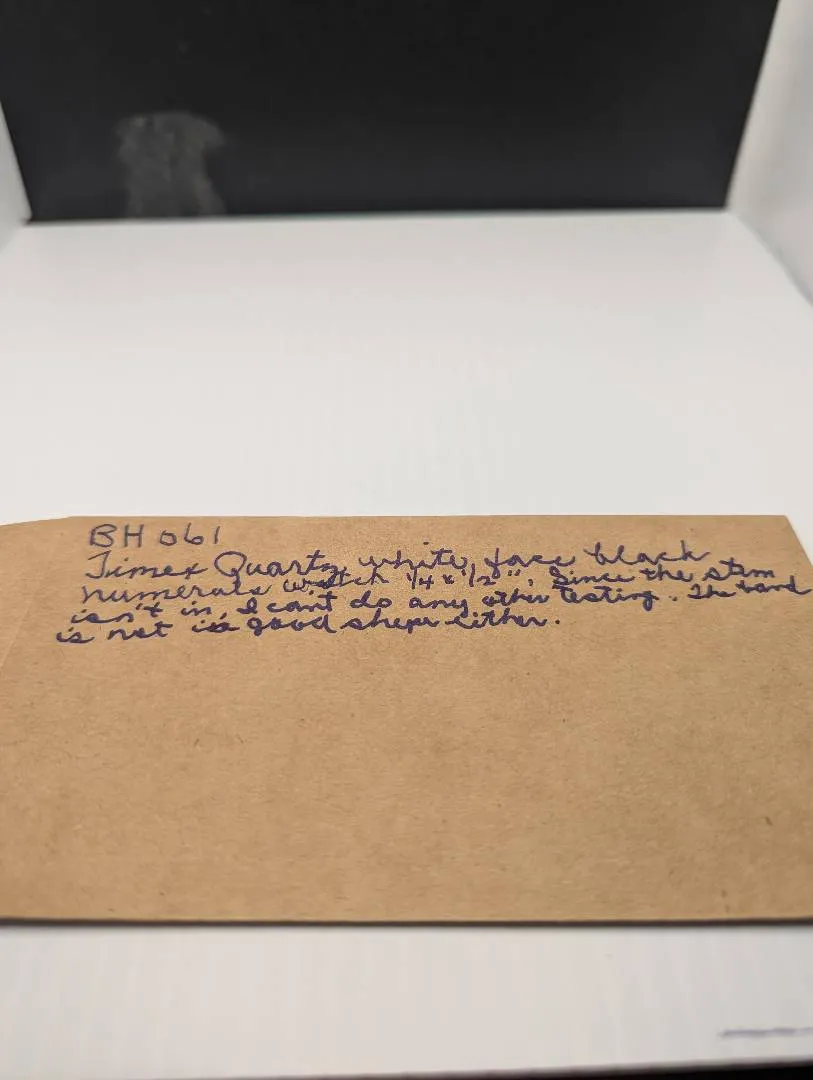 BH 061
Timex Quartz, white, face black
numerals watch 1/4 x 1/2". Since the stem
isn't in, I can't do any other testing. The band
is not in good shape either.